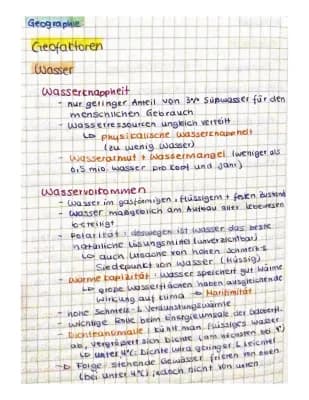 Geographie
Geofaktoren
Wasser
Wasserknappheit
- nur geringer Anteil von 3% Süßwasser für den
menschlichen Gebrauch
- Wasserressourcen ungleich verteilt
↳ physikalische Wasserknappheit
(zu wenig Wasser)
- Wasserarmut + Wassermangel (weniger als
0,5 mio. Wasser pro Kopf und Jahr)
Wasservorkommen
- Wasser im gasförmigen, flüssigem + festen Zustand
- Wasser maßgeblich am Aufbau aller Lebewesen
beteiligt
- Polarität: deswegen ist Wasser das beste
natürliche Lösungsmittel (unverzichtbar)
↳ auch Ursache von hohen Schmelz- &
Siedepunkt von Wasser (flüssig)
- Wärmekapazität: Wasser speichert gut Wärme
↳ große Wasserflächen haben ausgleichende
Wirkung auf Klima → Maritimität
- hohe Schmelz- & Verdunstungswärme
- wichtige Rolle beim Energieumsatz der
- Dichteanomalie: kühlt man flüssiges Wasser
ab, vergrößert sich Dichte (am höchsten bei 4°)
↳ unter 4°C: Dichte wird geringer & leichter
- Folge: stehende Gewässer frieren von oben
(bei unter 4°C) jedoch nicht von unten